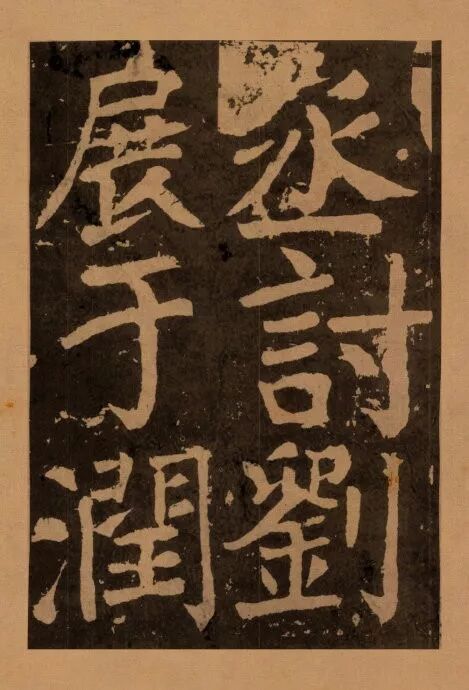 丞討劉
展于潤